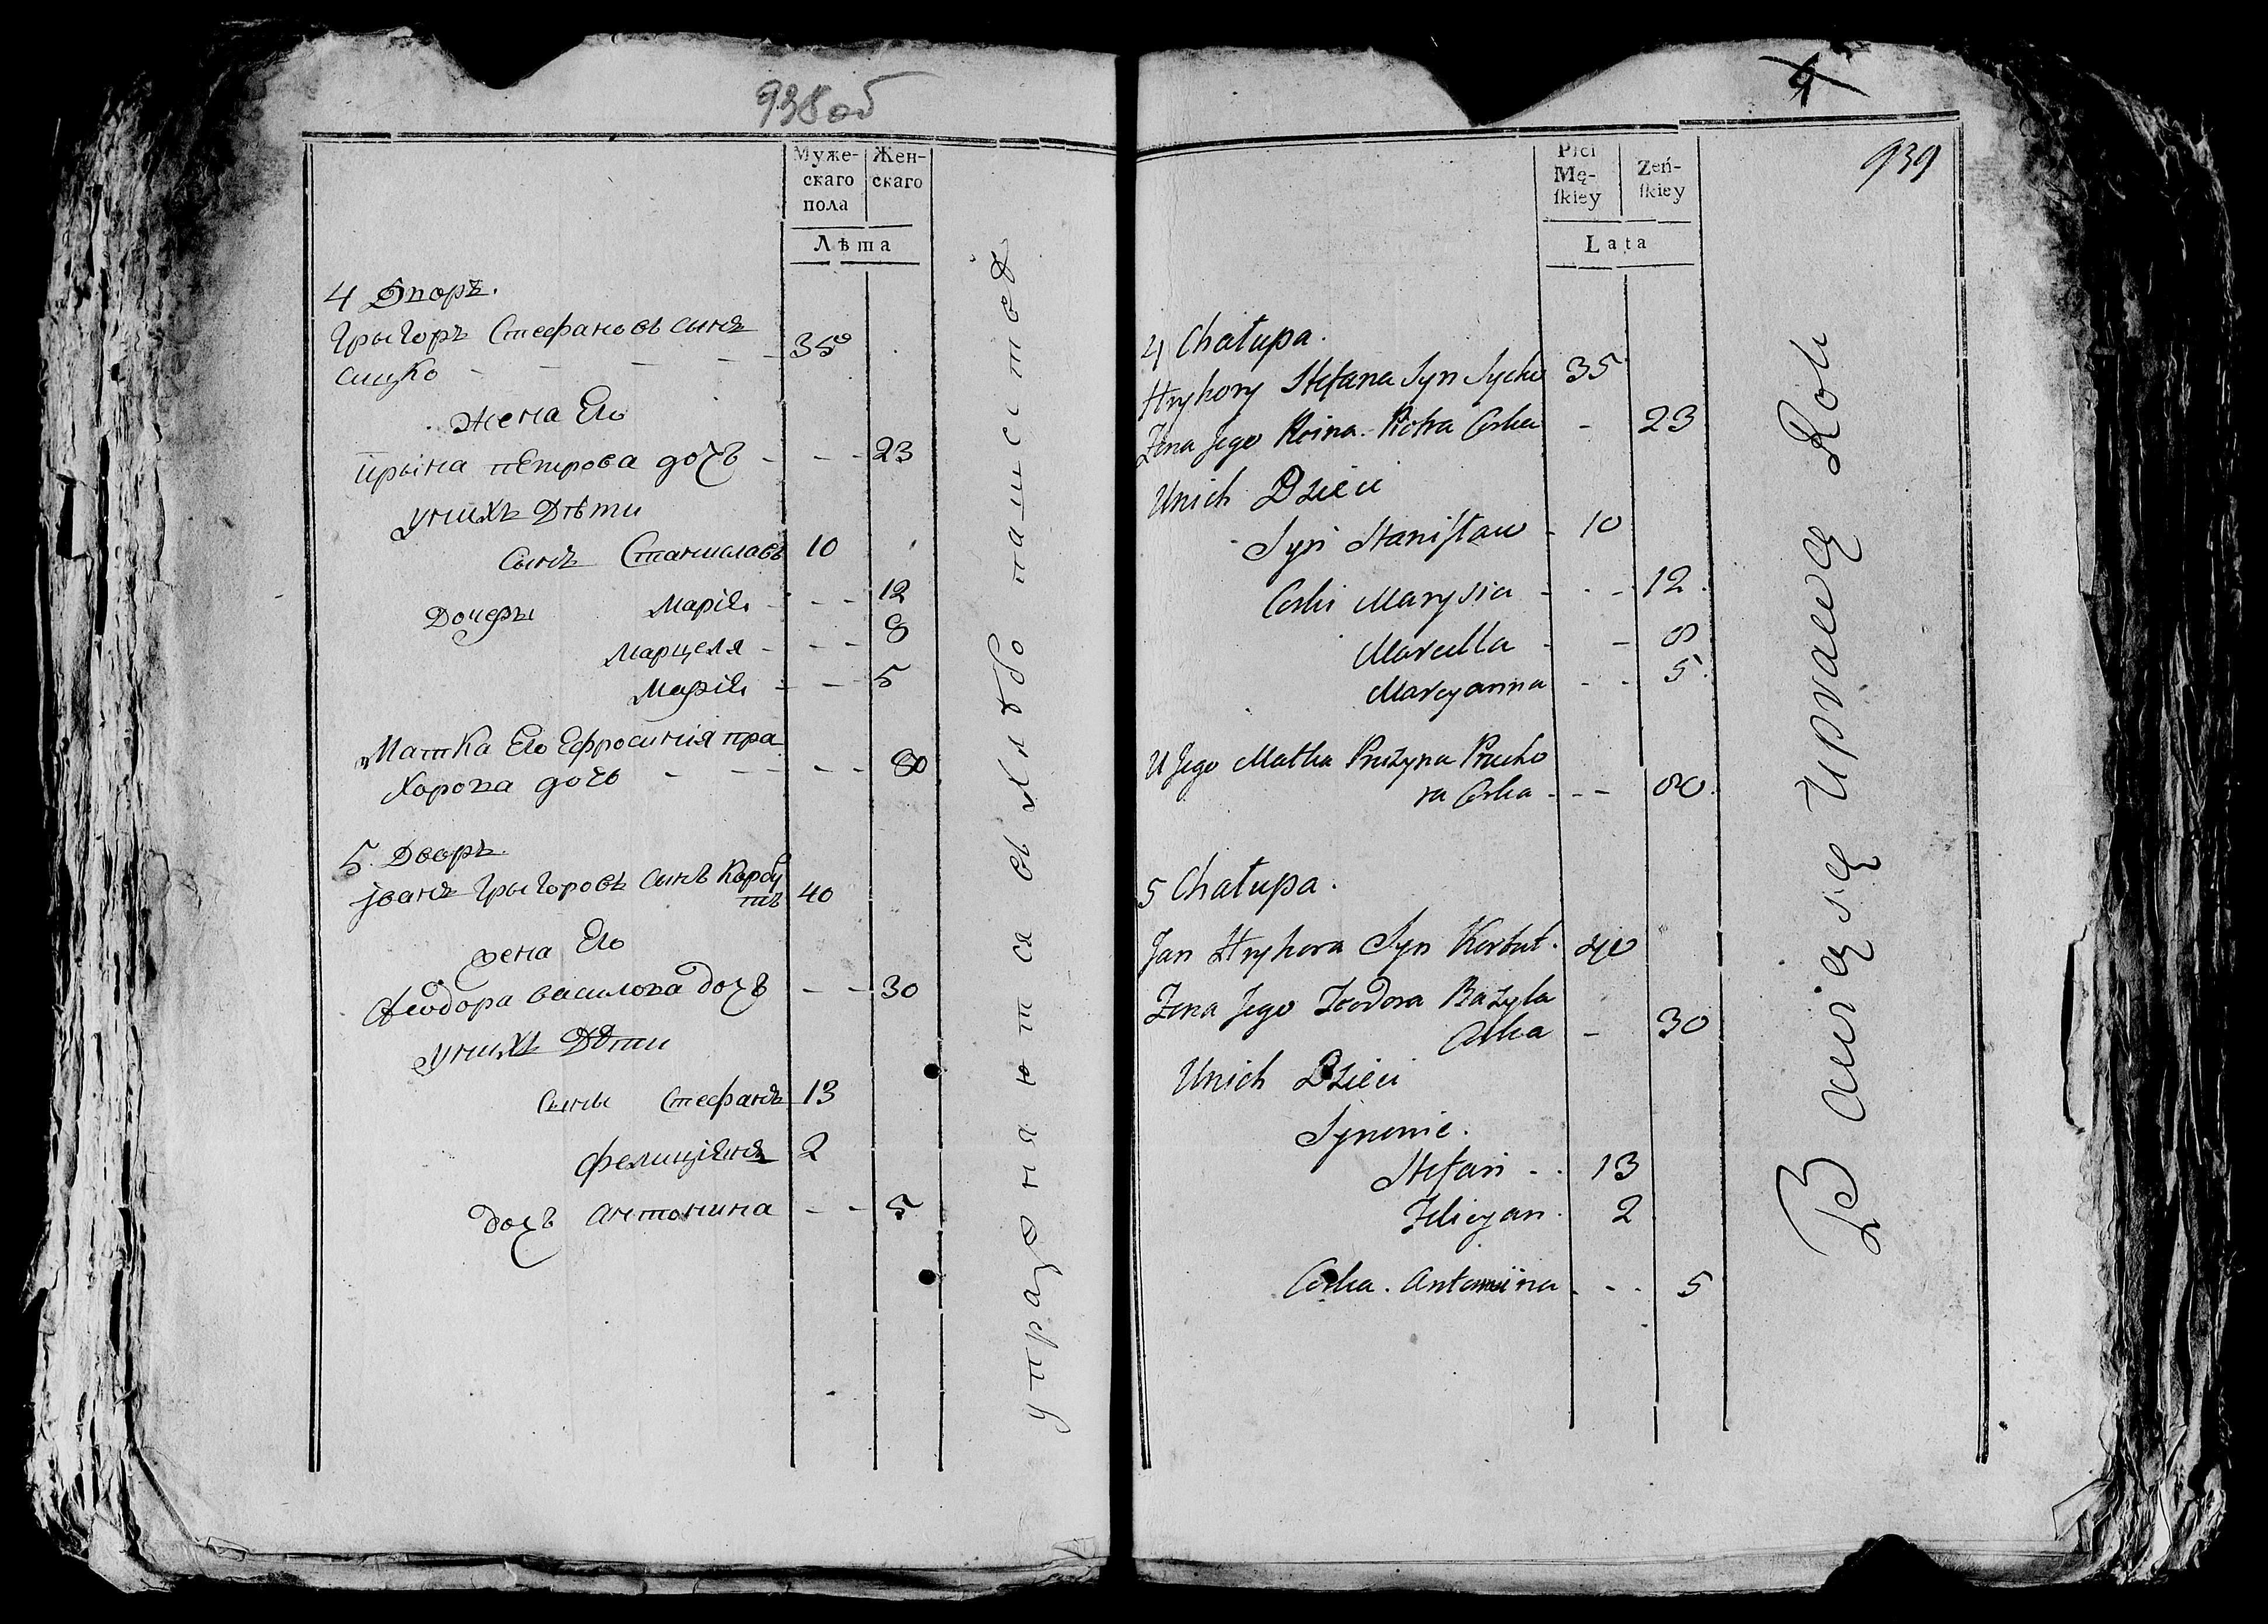 938об
Муже- Жен-
скаго скаго
пола
Лѣта
4 Дворъ.
Грыгоръ Стефановъ синъ
сицко - - - - 35
жена Его
Ирына пЕтрова дочъ - - - 23
унихъ Дѣти
Сынъ Станиславъ 10
Дочеры Марія - - - 12
Марцеля - - - 8
Марія - - 5
Матка Его Ефросинія пра
Хорова дочъ - - - - - 80
5. Дворъ.
Јванъ Грыгоровъ синъ Карбу
тъ 40
жена Его
Феодора василова дочъ - - 30
унихъ Дѣти
Сыны Стефанъ 13
Фелиціянъ 2
дочъ антонина - - 5
упражняются въ хлѣбопашествѣ
4
939
Płci Zeń-
Mę- ſkiey
ſkiey
Lata
4 Chałupa.
Hryhory Stefana Syn Sycko 35
Zona Jego Roina Piotra Corka - 23
Unich Dzieci
Syn Stanisław - 10
Corki Marysia - - - 12.
Marcella - - 8
Marcyanna - - 5.
U Jego Matka Pruzyna Prucho
ra Corka - - - 80.
5 Chałupa.
Jan Hryhora Syn Korbut. 40
Zona Jego Teodora Bazyla
Corka - 30
Unich Dzieci
Synowie.
Stefan - . 13
Felicyan. 2
Corka. Antonina . - . 5
Bawią się uprawą Roli